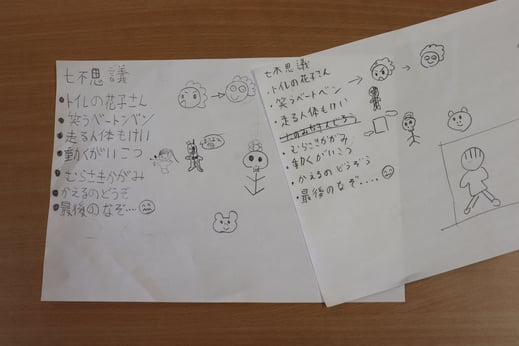 七不思議
トイレの花子さん
笑うベートベン
走る人体もけい
動くがいこつ
むらさきかがみ
かえるのどうぞ
最後のなぞ....
七不思議
トイレの花子さん
笑うベートベン
走る人体もけい
むらさきかがみ
動くがいこつ
かえるのどうぞう
最後のなぞ....